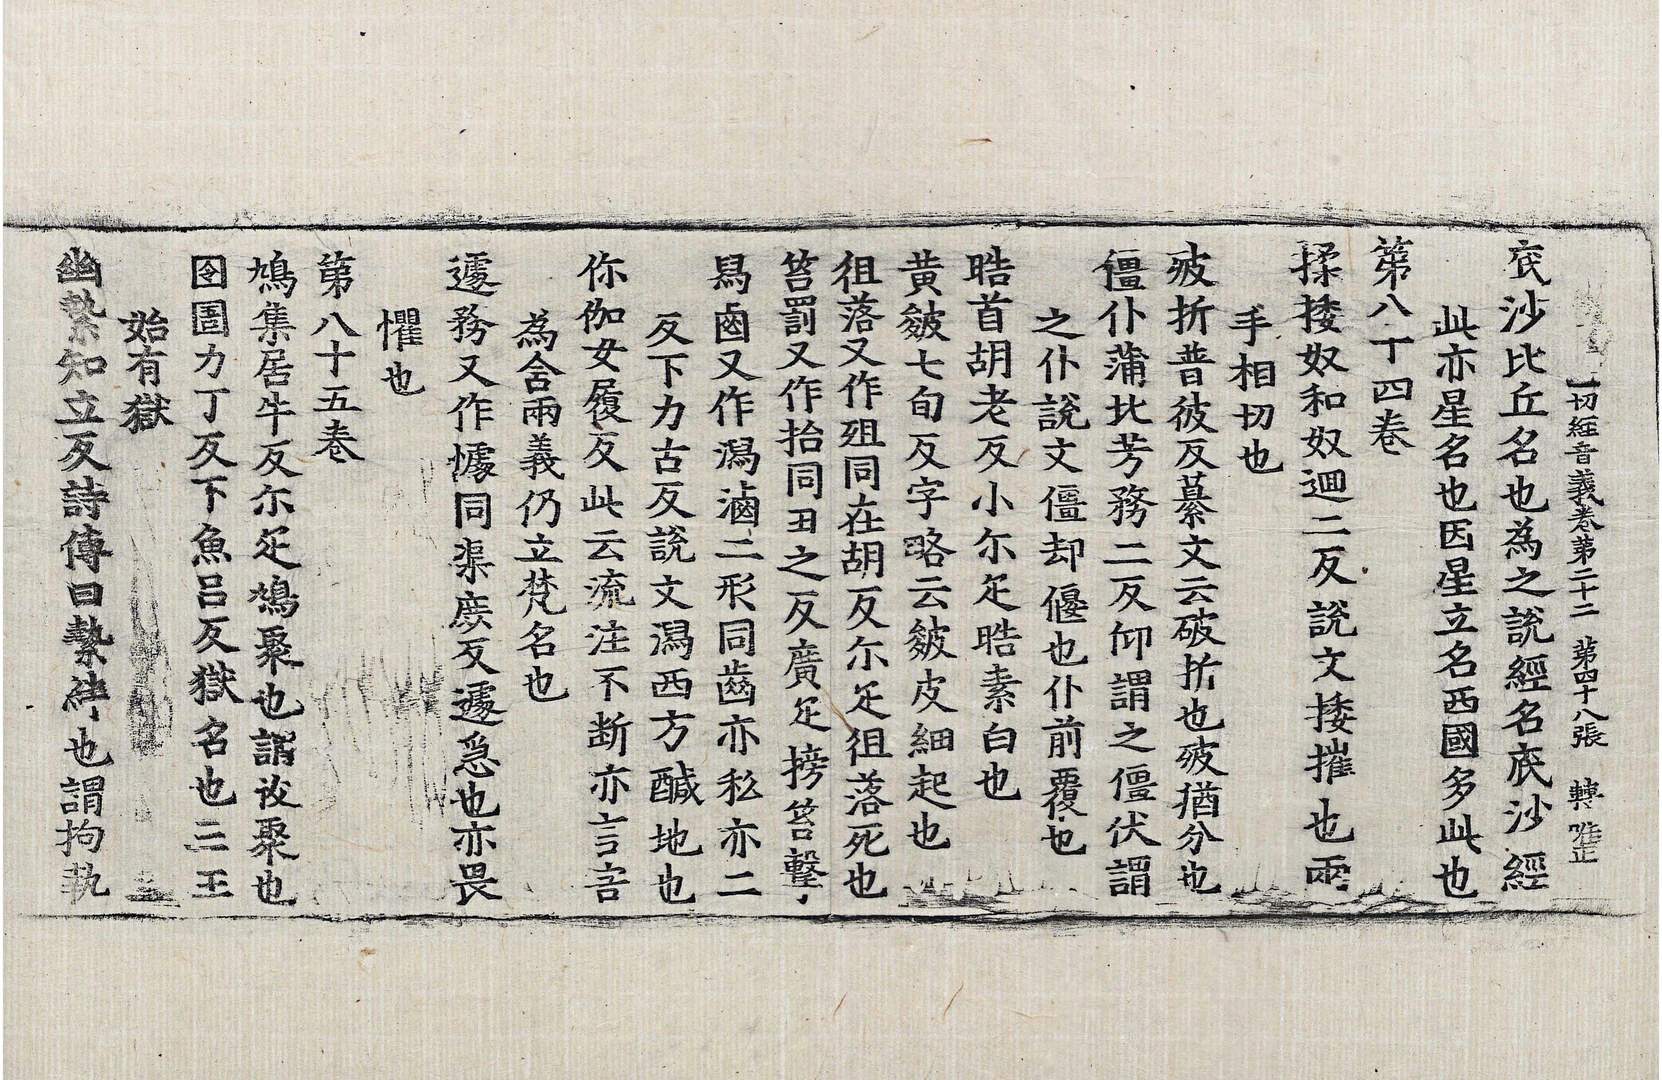 一切經音義卷第二十二　第四十八張　轉　唯正
底沙比丘名也為之說經名底沙經
此亦星名也因星立名西國多此也
第八十四卷
揉捼奴和奴迴二反說文捼摧也兩
手相切也
㱟折普彼反纂文云破折也㱟猶分也
僵仆蒲北芳務二反仰謂之僵伏謂
之仆說文僵却偃也仆前覆也
晧首胡老反小尓疋晧素白也
黃皴七旬反字略云皴皮細起也
徂落又作殂同在胡反尓疋徂落死也
笞罰又作抬同丑之反廣疋搒笞擊也
舄鹵又作潟滷二形同齒亦私亦二
反下力古反說文潟西方醎地也
你伽女履反此云流注不断亦言害
為含兩義仍立梵名也
遽務又作懅同渠庶反遽急也亦畏
懼也
第八十五卷
鳩集居牛反尓疋鳩聚也謂收聚也
囹圄力丁反下魚呂反獄名也三王
始有獄
幽縶知立反詩傳曰縶絆也謂拘執